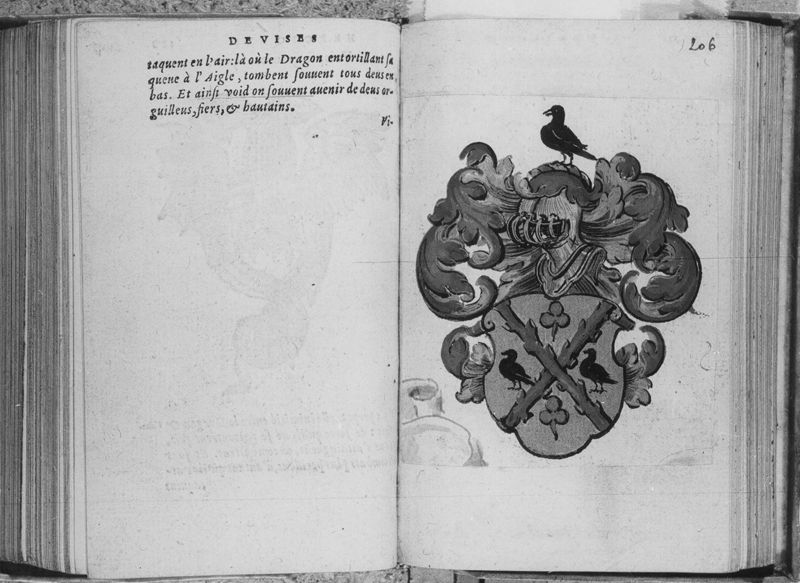 DEVISES
taquent en l'air: là où le Dragon entortillant sa
queue à l'Aigle, tombent souuent tous deus en
bas. Et ainsi void on souuent auenir de deus or-
guilleus, fiers, & hautains.
Vi-
206